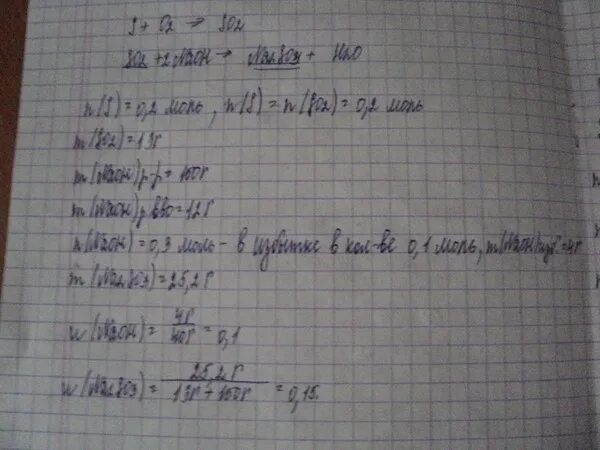 S + O2 → SO2
SO2 + 2NaOH → Na2SO3 + H2O
n(S) = 0,2 моль, n(S) = n(SO2) = 0,2 моль
m(SO2) = 13г
m(NaOH) р-р = 100г
m(NaOH) р.в-во = 12г
n(NaOH) = 0,3 моль - в избытке в кол-ве 0,1 моль, m(NaOH) изб = 4г
m(Na2SO3) = 25,2г
w(NaOH) = 4г/40г = 0,1
w(Na2SO3) = 25,2г/13г+100г = 0,15